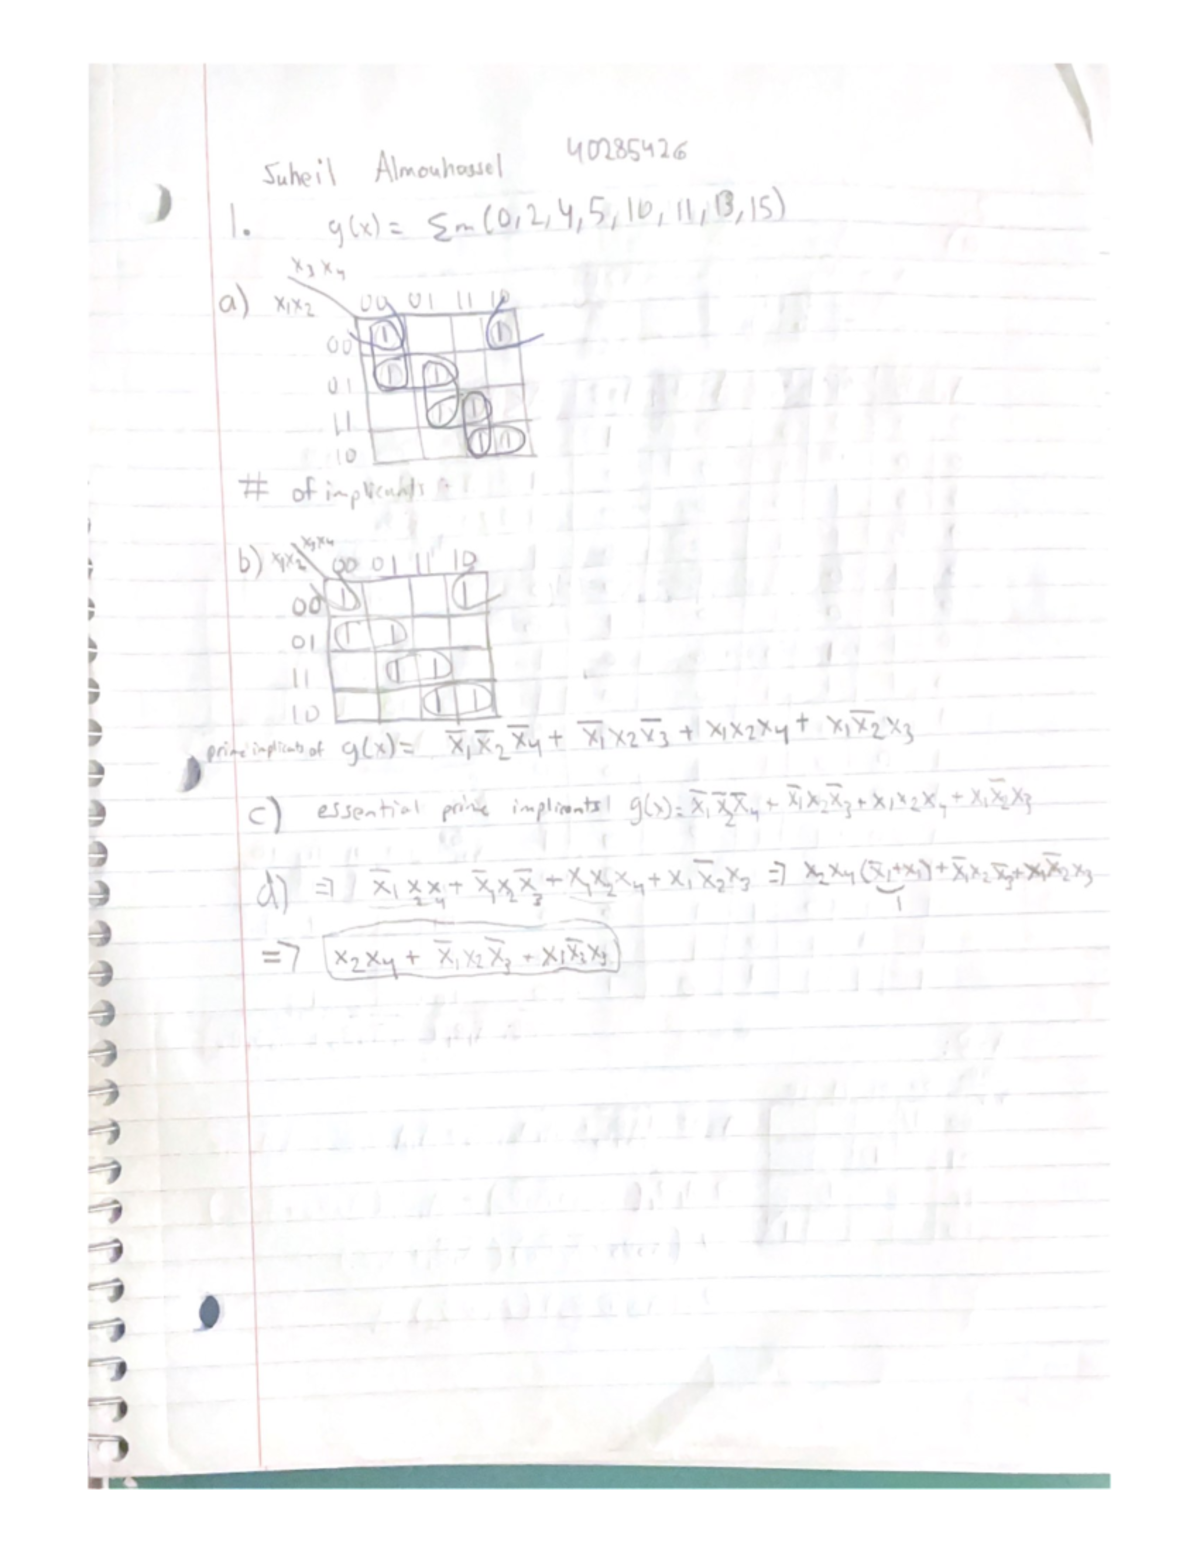 Suheil Almouhassel 40285426
1. g(x) = Σm(0,2,4,5,10,11,13,15)
x₃x₄
a) x₁x₂ 00 01 11 10
00 1 1
01 1 1
11 1 1
10 1 1
# of implicants
b) x₁x₂ x₃x₄ 00 01 11 10
00 1 1
01 1 1
11 1 1
10 1 1
prime implicants of g(x) = x̄₁x̄₂x̄₄ + x̄₁x₂x̄₃ + x₁x₂x₄ + x₁x̄₂x₃
c) essential prime implicants g(x) = x̄₁x̄₂x̄₄ + x̄₁x₂x̄₃ + x₁x₂x₄ + x₁x̄₂x₃
d) => x̄₁x₂x₄ + x̄₁x₂x̄₃ + x₁x₂x₄ + x₁x̄₂x₃ => x₂x₄(x̄₁+x₁) + x̄₁x₂x̄₃ + x₁x̄₂x₃
1
=> x₂x₄ + x̄₁x₂x̄₃ + x₁x̄₂x₃